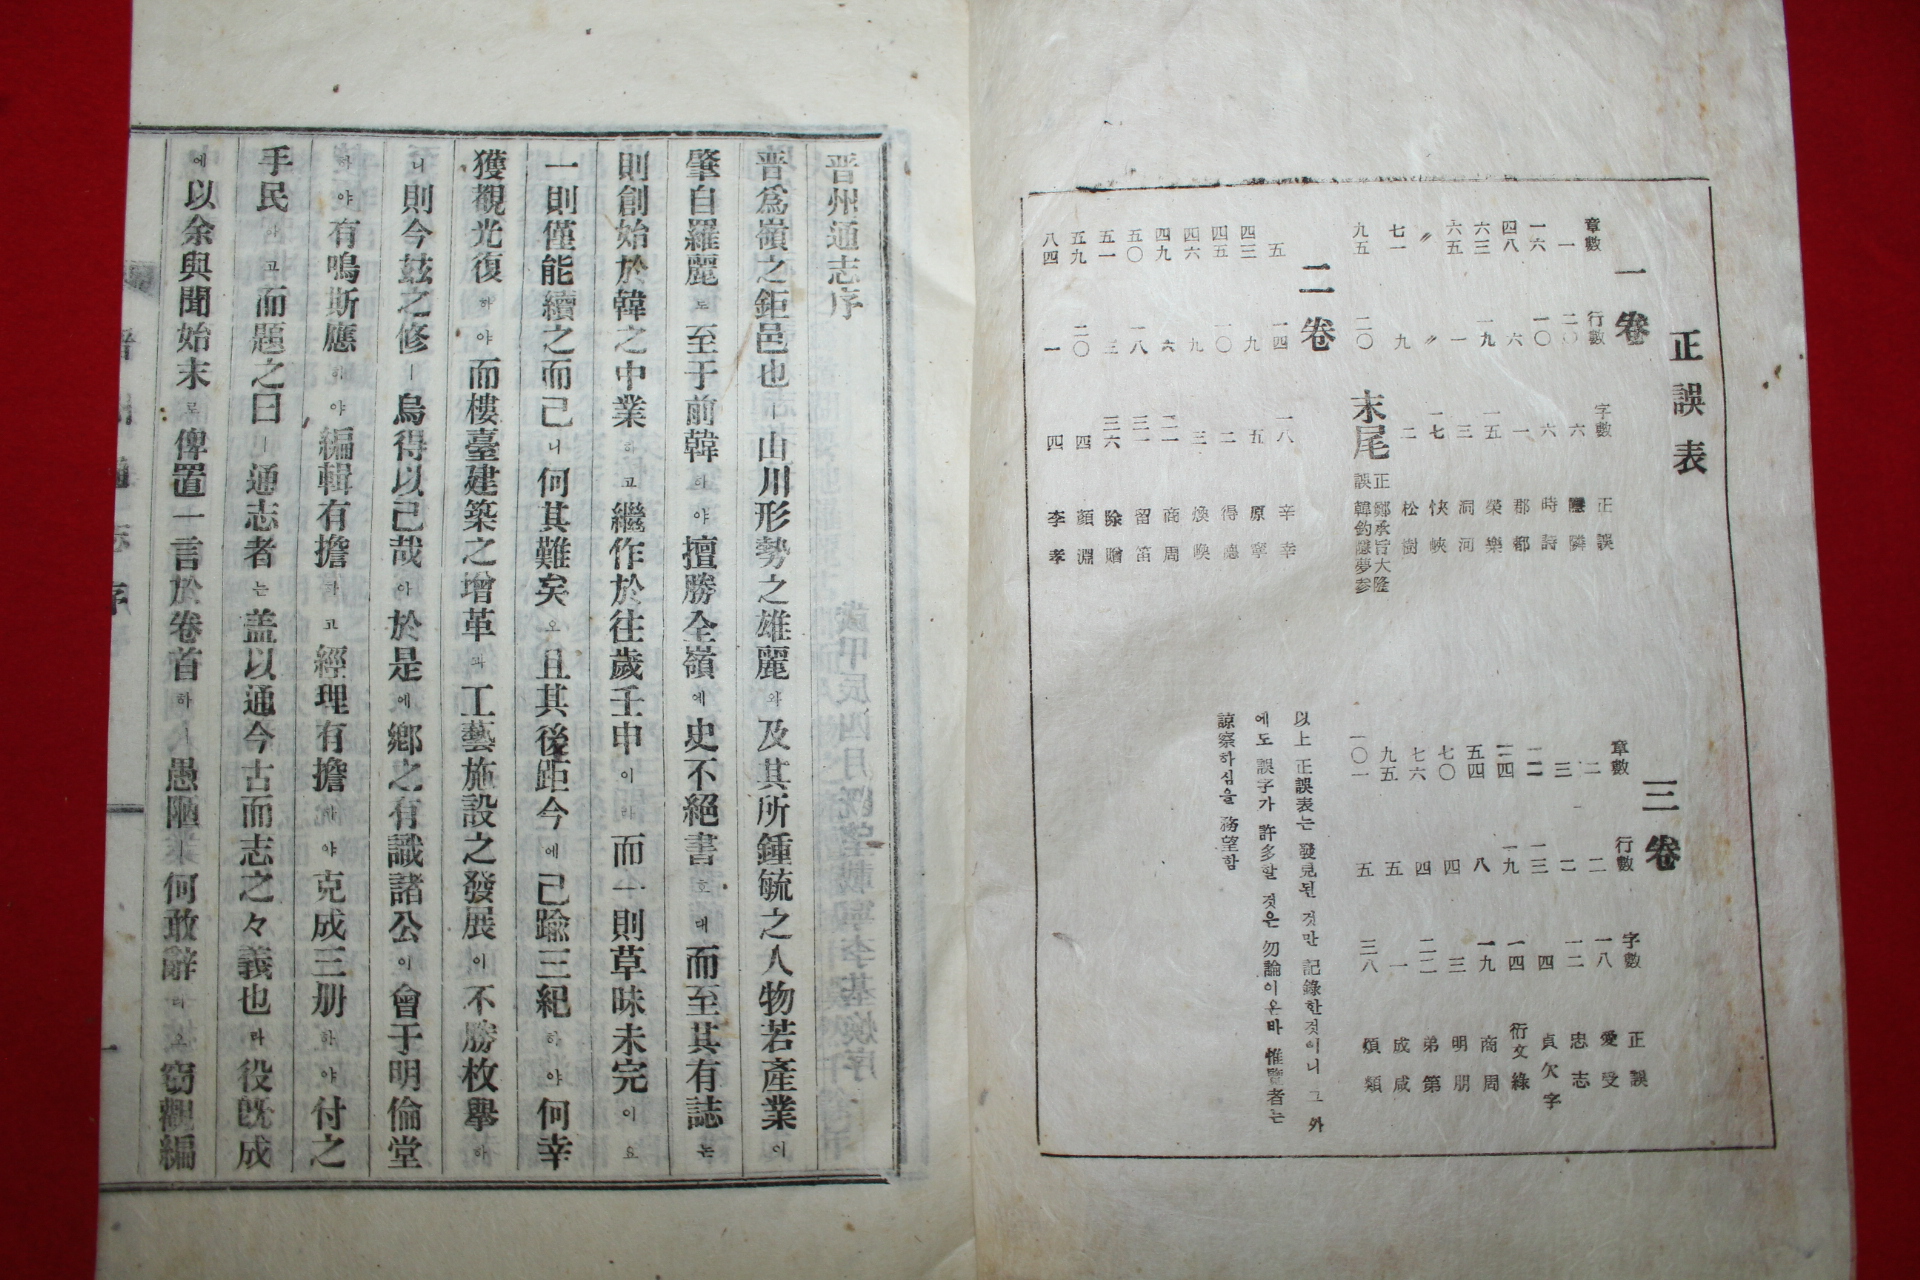 正誤表
一卷
章數 行數 字數 正 誤
一 二〇 六 隱 隣
一六 一〇 六 時 詩
四八 六 一 郡 都
六三 一九 一五 榮 樂
六五 一 三 洞 河
〃 〃 一七 俠 峽
七一 九 二 松 樹
九五 二〇 末尾 正 鄭承旨大隆
誤 韓鈞隱夢參
二卷
五 一四 一八 辛 幸
四三 九 五 原 寧
四五 一〇 二 得 德
四六 九 三 煥 喚
四九 六 二一 商 周
五〇 一八 三一 留 笛
五一 三 三六 除 贈
五九 二〇 四 顔 淵
八四 一 四 李 孝
三卷
章數 行數 字數 正 誤
二 二 一八 愛 受
三 二 一二 忠 志
二二 一三 四 貞 欠字
二四 一九 一四 衍文 綠
五四 八 一九 商 周
七〇 四 三 明 朋
七六 四 二二 弟 第
九五 五 一 成 咸
一〇一 五 三八 煩 類
以上 正誤表는 發見된 것만 記錄한것이니 그 外
에도 誤字가 許多할 것은 勿論이온바 惟覽者는
諒察하심을 務望함
晋州通志序
晋爲嶺之鉅邑也ㅣ山川形勢之雄麗와及其所鍾毓之人物若產業이
肇自羅麗로至于前韓하야擅勝全嶺에史不絕書호대而至其有誌는
則創始於韓之中業하고繼作於往歲壬申이라而一則草昧未完이요
一則僅能續之而己니何其難矣오且其後距今에己踰三紀하야何幸
獲觀光復하야而樓臺建築之增革과工藝施設之發展이不勝枚擧하
니則今玆之修ㅣ烏得以己哉아於是에鄕之有識諸公이會于明倫堂
하야有鳴斯應하야編輯有擔하고經理有擔하야克成三册하야付之
手民하고而題之曰ㅣ通志者는盖以通今古而志之々義也라役旣成
에以余與聞始末로俾置一言於卷首하ㅣ愚陋ㅣ何敢辭리오窃觀編
通志序
一